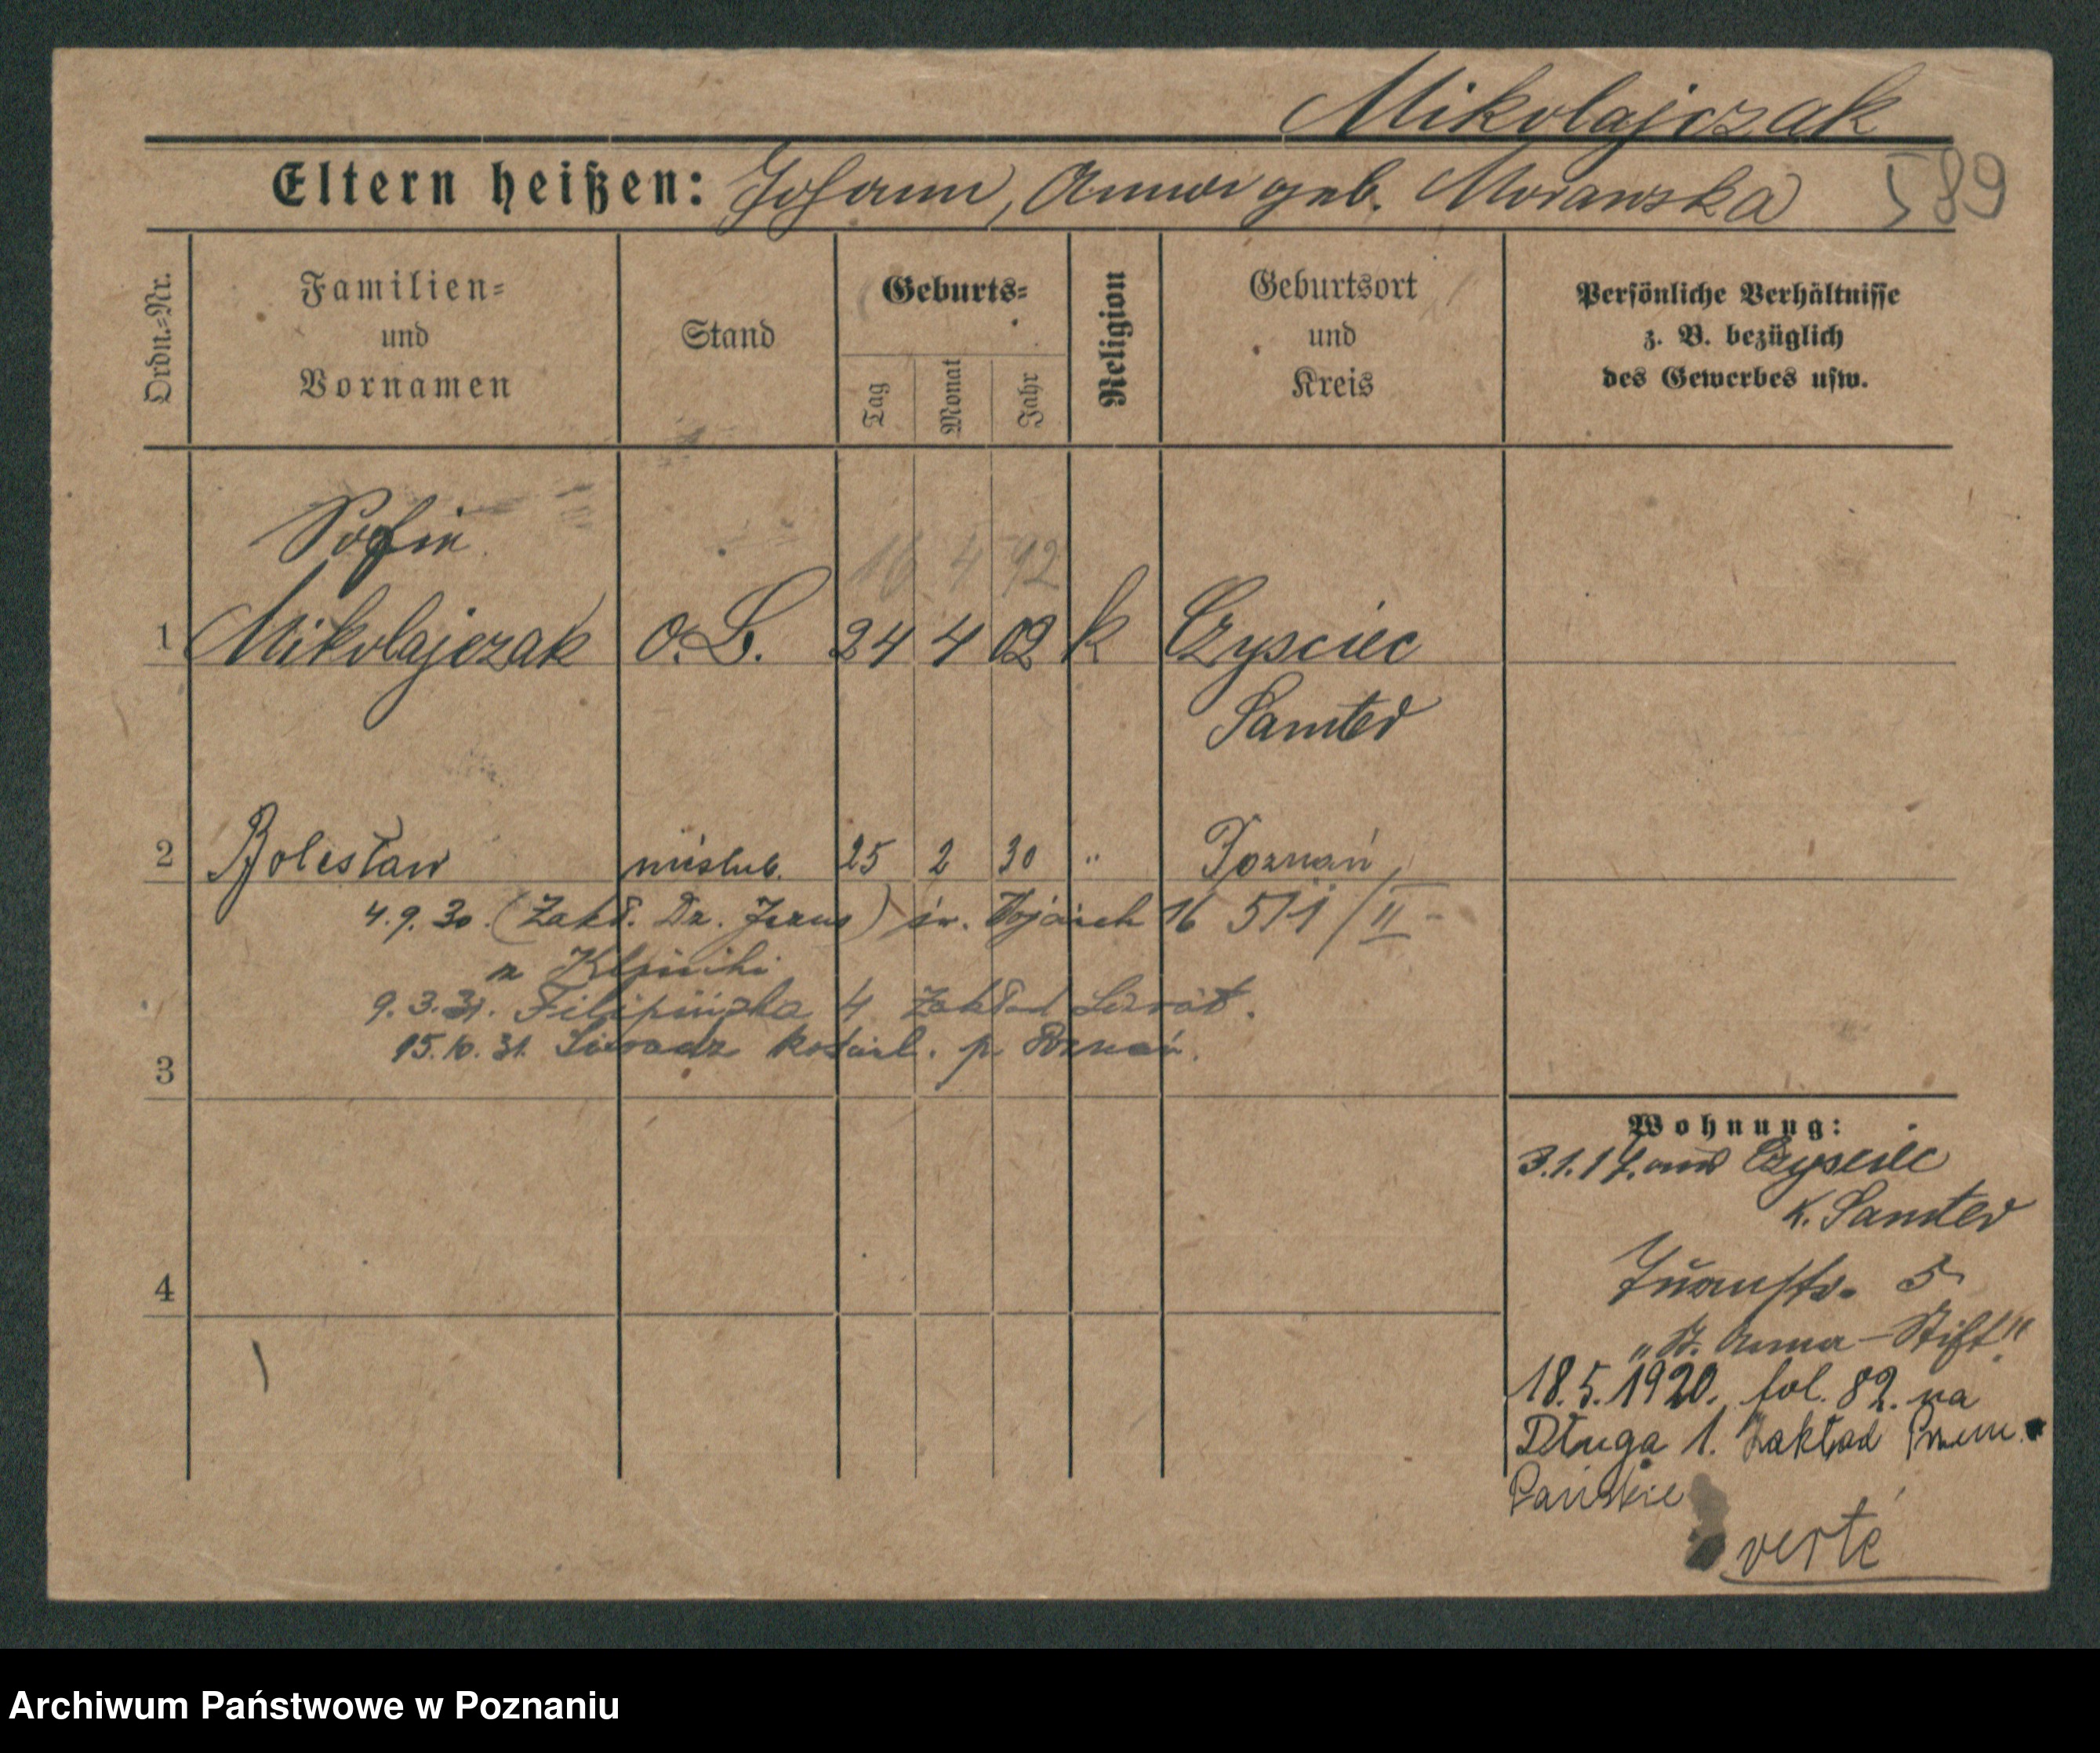 Mikolajczak
Eltern heißen: Johann, Anna geb. Morawska 589
Ordn.=Nr.
Familien=
und
Vornamen
Stand
Geburts=
Tag
Monat
Jahr
Religion
Geburtsort
und
Kreis
Persönliche Verhältnisse
z. B. bezüglich
des Gewerbes usw.
Sofie
16 4 92
1 Mikolajczak o.B. 24 4 02 k Czysciec
Samter
2 Bolesław nieślub. 25 2 30 " Poznań
4.9.30. (Zakł. Dz. Jezus) św. Wojciech 16 571/II
z
9.3.31. Filipińska 4 Zakład
15.10.31. p. Poznań.
3
4
Wohnung:
3.1.17. aus Czysciec
K. Samter
5
"St. Anna-Stift"
18.5.1920. fol. 82. na
Długa 1. Zakład Przem.
Pańskie
verte
Archiwum Państwowe w Poznaniu